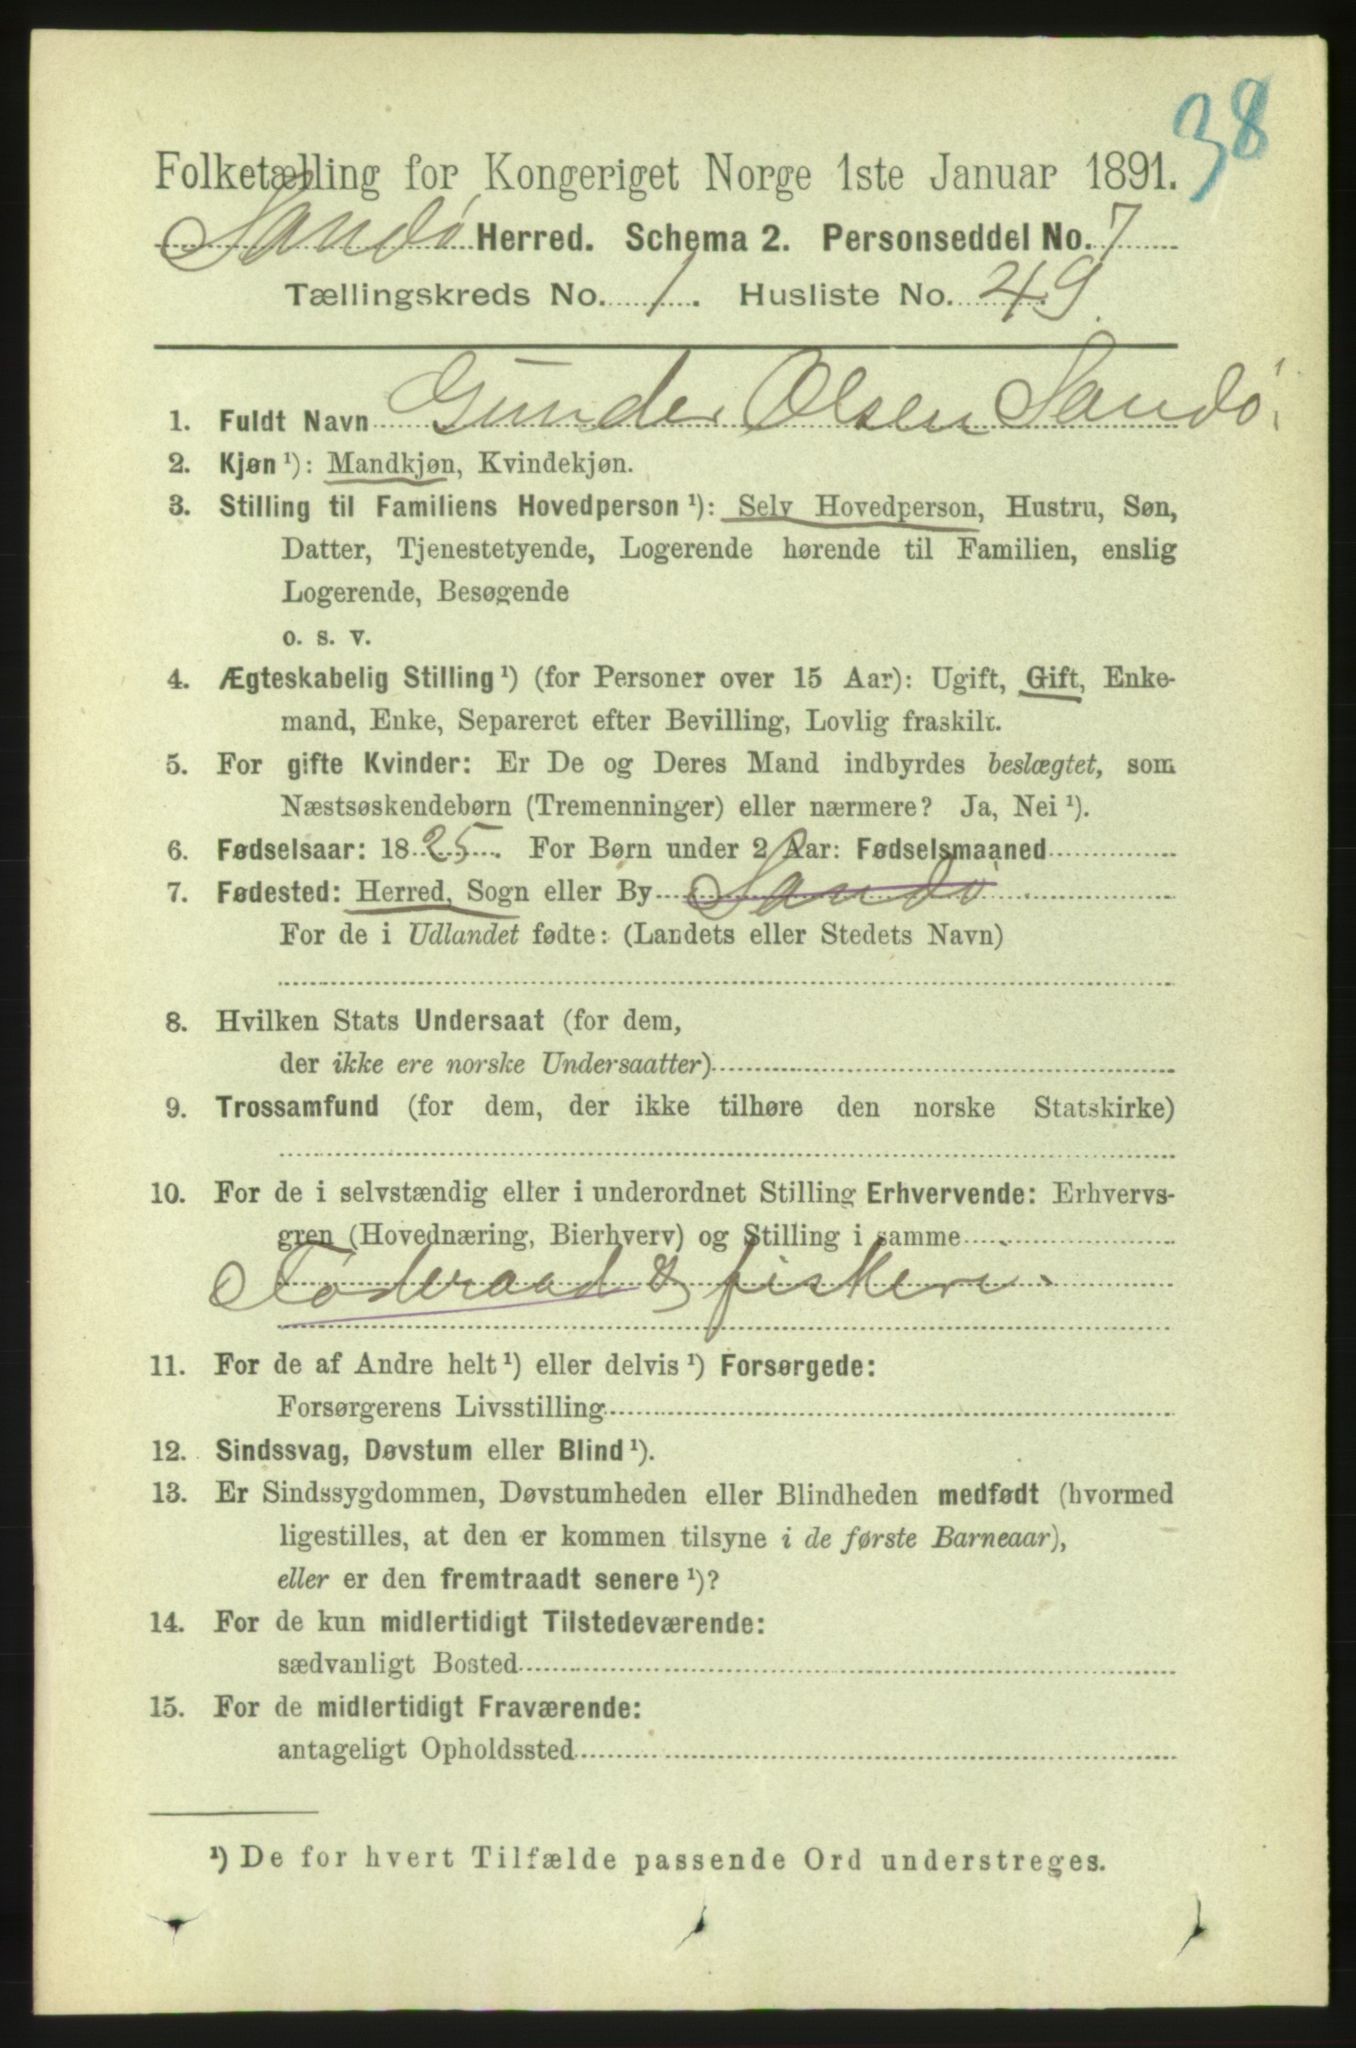 38
Folketælling for Kongeriget Norge 1ste Januar 1891.
Sandø Herred. Schema 2. Personseddel No. 7
Tællingskreds No. 1. Husliste No. 49.
1. Fuldt Navn Gunder Olsen Sandø.
2. Kjøn ¹): Mandkjøn, Kvindekjøn.
3. Stilling til Familiens Hovedperson ¹): Selv Hovedperson, Hustru, Søn,
Datter, Tjenestetyende, Logerende hørende til Familien, enslig
Logerende, Besøgende
o. s. v.
4. Ægteskabelig Stilling ¹) (for Personer over 15 Aar): Ugift, Gift, Enke-
mand, Enke, Separeret efter Bevilling, Lovlig fraskilt.
5. For gifte Kvinder: Er De og Deres Mand indbyrdes beslægtet, som
Næstsøskendebørn (Tremenninger) eller nærmere? Ja, Nei ¹).
6. Fødselsaar: 1825. For Børn under 2 Aar: Fødselsmaaned
7. Fødested: Herred, Sogn eller By Sandø
For de i Udlandet fødte: (Landets eller Stedets Navn)
8. Hvilken Stats Undersaat (for dem,
der ikke ere norske Undersaatter)
9. Trossamfund (for dem, der ikke tilhøre den norske Statskirke)
10. For de i selvstændig eller i underordnet Stilling Erhvervende: Erhvervs-
gren (Hovednæring, Bierhverv) og Stilling i samme
Föderaad & fiskeri.
11. For de af Andre helt ¹) eller delvis ¹) Forsørgede:
Forsørgerens Livsstilling
12. Sindssvag, Døvstum eller Blind ¹).
13. Er Sindssygdommen, Døvstumheden eller Blindheden medfødt (hvormed
ligestilles, at den er kommen tilsyne i de første Barneaar),
eller er den fremtraadt senere ¹)?
14. For de kun midlertidigt Tilstedeværende:
sædvanligt Bosted
15. For de midlertidigt Fraværende:
antageligt Opholdssted
¹) De for hvert Tilfælde passende Ord understreges.